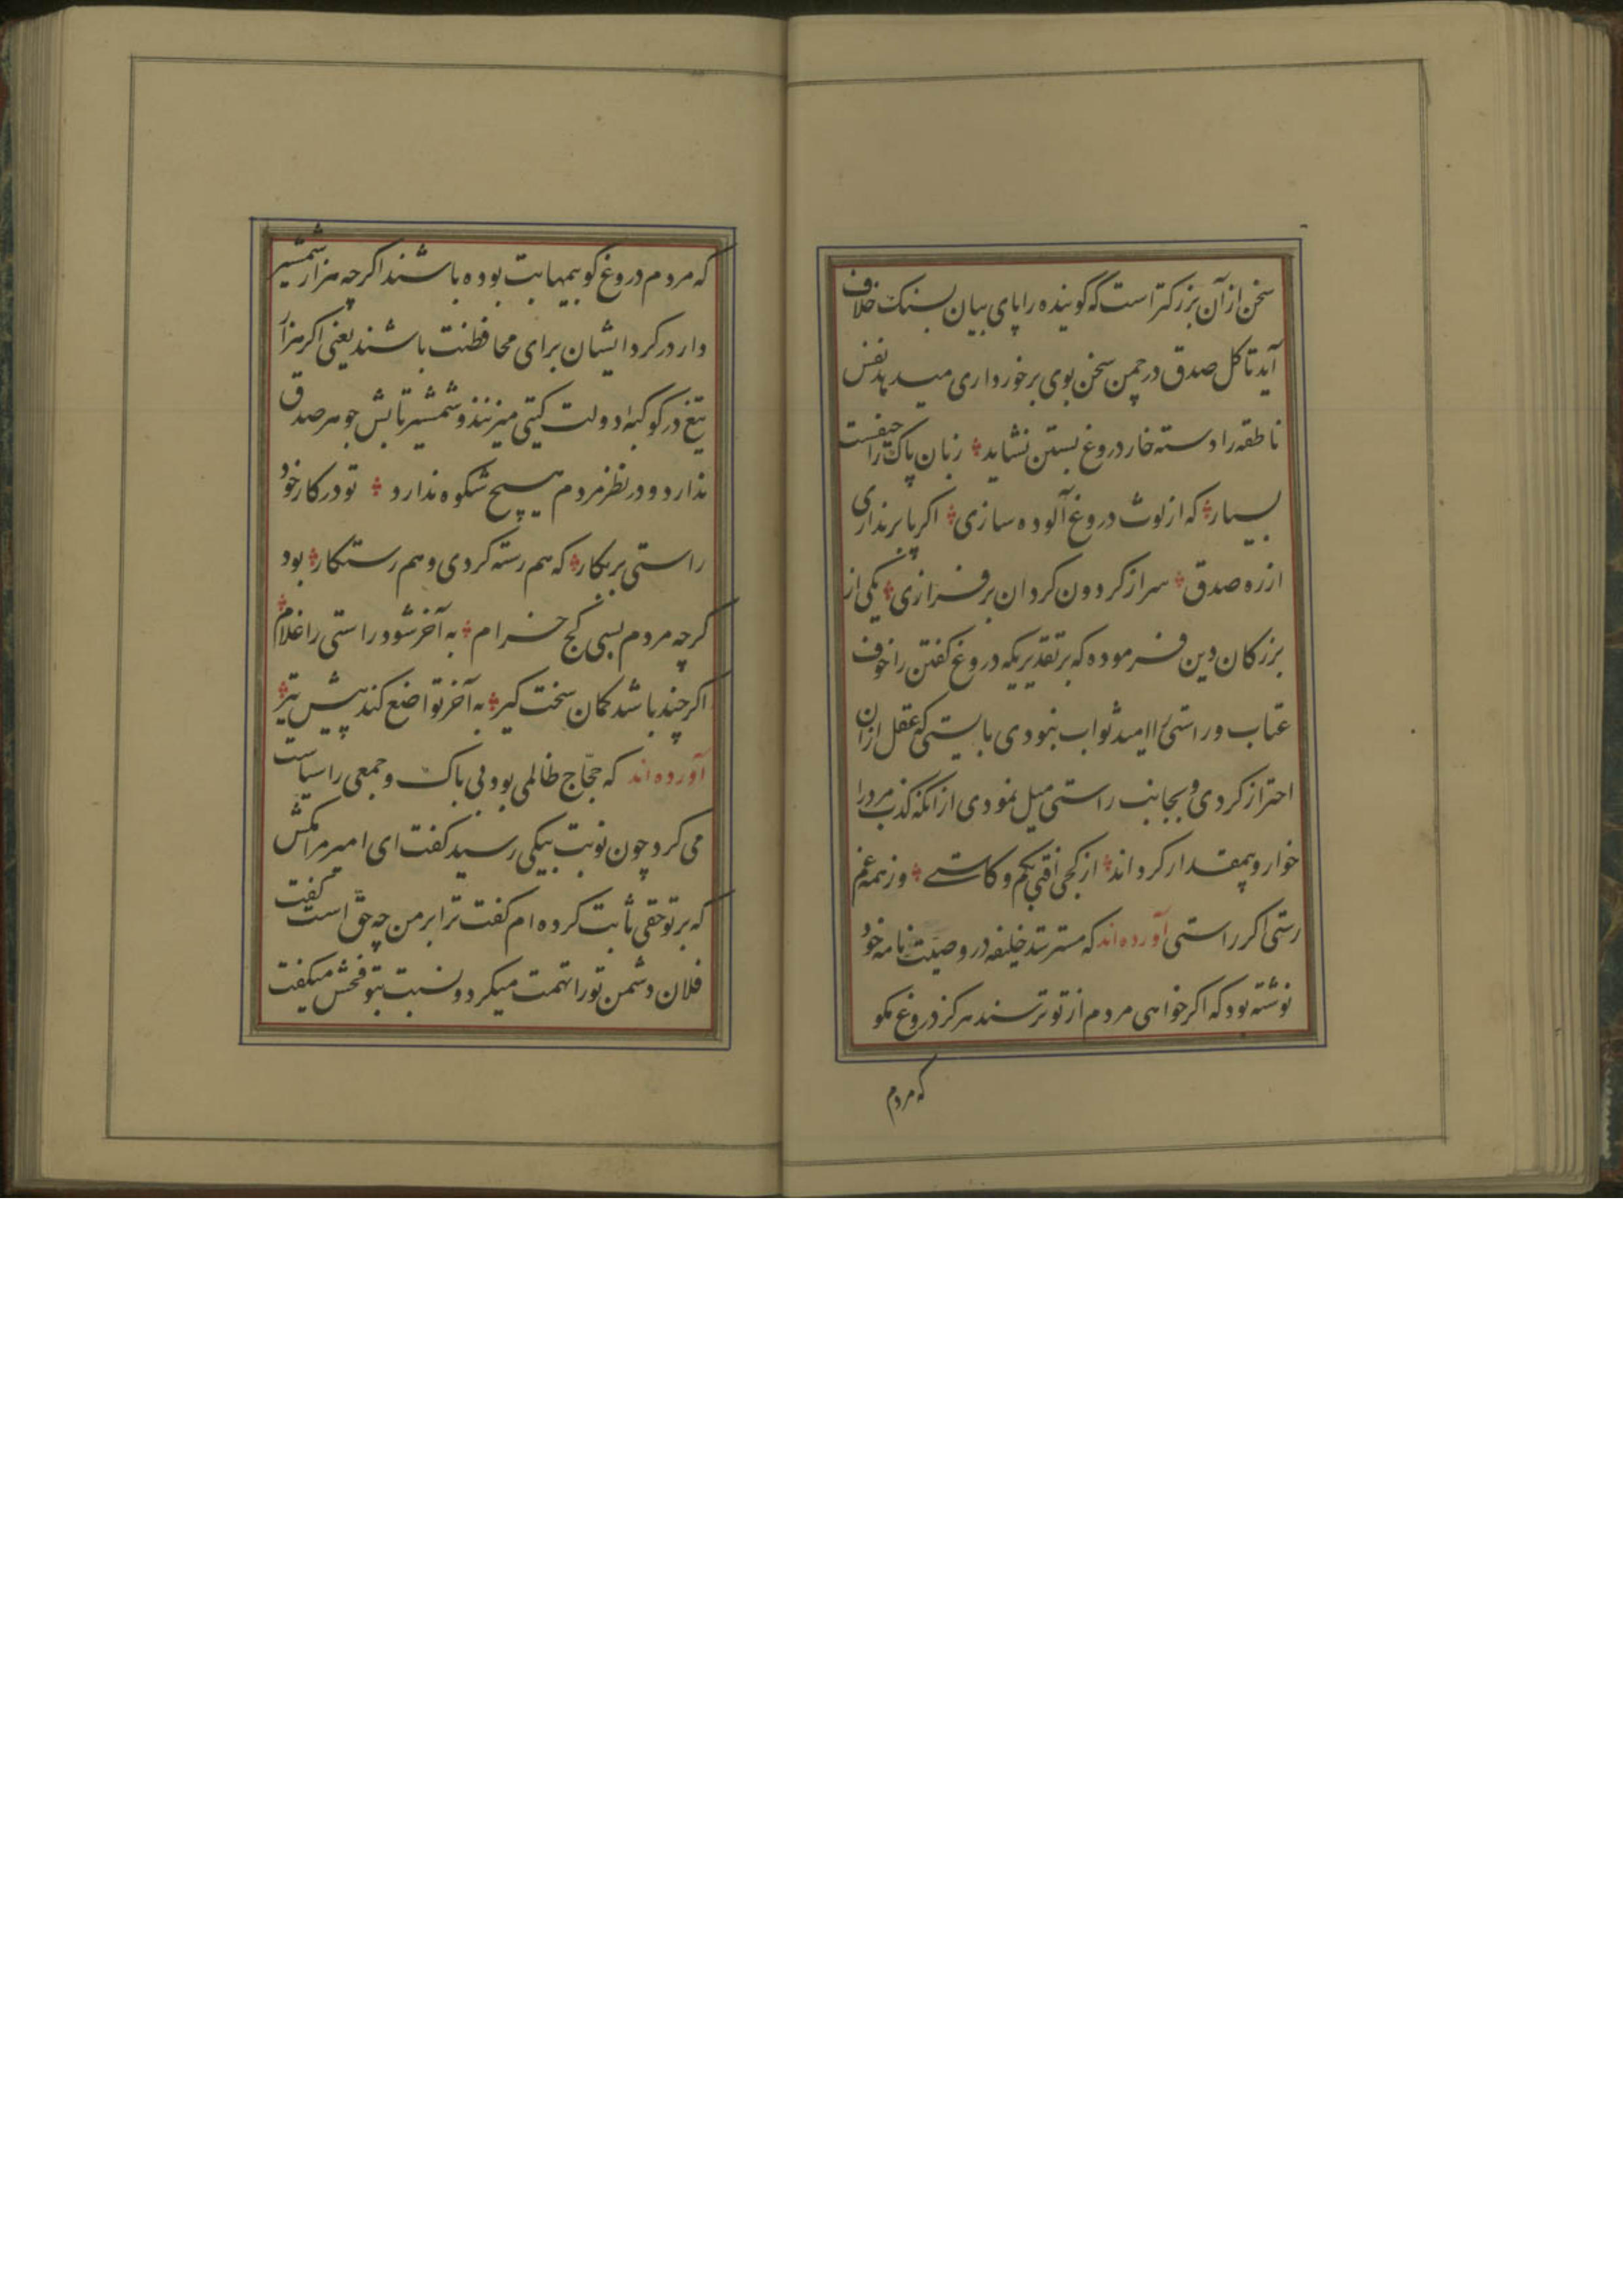 سخن از آن بزرکتر است که کوینده را پای بیان بسنک خلاف
آید تا کل صدق در چمن سخن بوی برخورداری میدهد نفس
ناطقه را دسته خار دروغ بستن نشاید زبان پاک را حیفست
بسیار که از لوث دروغ آلوده سازی اکر پا بر نداری
از ره صدق سر از کردون کردان بر فرازی یکی از
بزرکان دین فرموده که بر تقدیریکه دروغ کفتن را خوف
عتاب و راستی را امید ثواب نبودی بایستی که عقل از ان
احتراز کردی و بجانب راستی میل نمودی از انکه کذب مرد را
خوار و بیمقدار کرداند از کجی افتی بکم و کاستی وز همه غم
رستی اکر راستی آورده اند که مسترشد خلیفه در وصیت نامه خود
نوشته بود که اکر خواهی مردم از تو ترسند هرکز دروغ مکو
که مردم
که مردم دروغ کو بیمهابت بوده باشند اکرچه هزار شمشیر
دار در کرد ایشان برای محافظت باشند یعنی اکر هزار
تیغ در کوکبه دولت کیتی میزنند و شمشیر تابش جوهر صدق
ندارد و در نظر مردم هیچ شکوه ندارد تو در کار خود
راستی بر بکار که هم رسته کردی و هم رستکار بود
کرچه مردم بسی کج خرام به آخر شود راستی را غلام
اکر چند باشد کمان سخت کیر به آخر تواضع کند پیش تیر
آورده اند که حجّاج ظالمی بود بی باک و جمعی را سیاست
می کرد چون نوبت بیکی رسید کفت ای امیر مرا مکش
که بر تو حقی ثابت کرده ام کفت ترا بر من چه حق است کفت
فلان دشمن تو را تهمت میکرد و نسبت بتو فحش میکفت